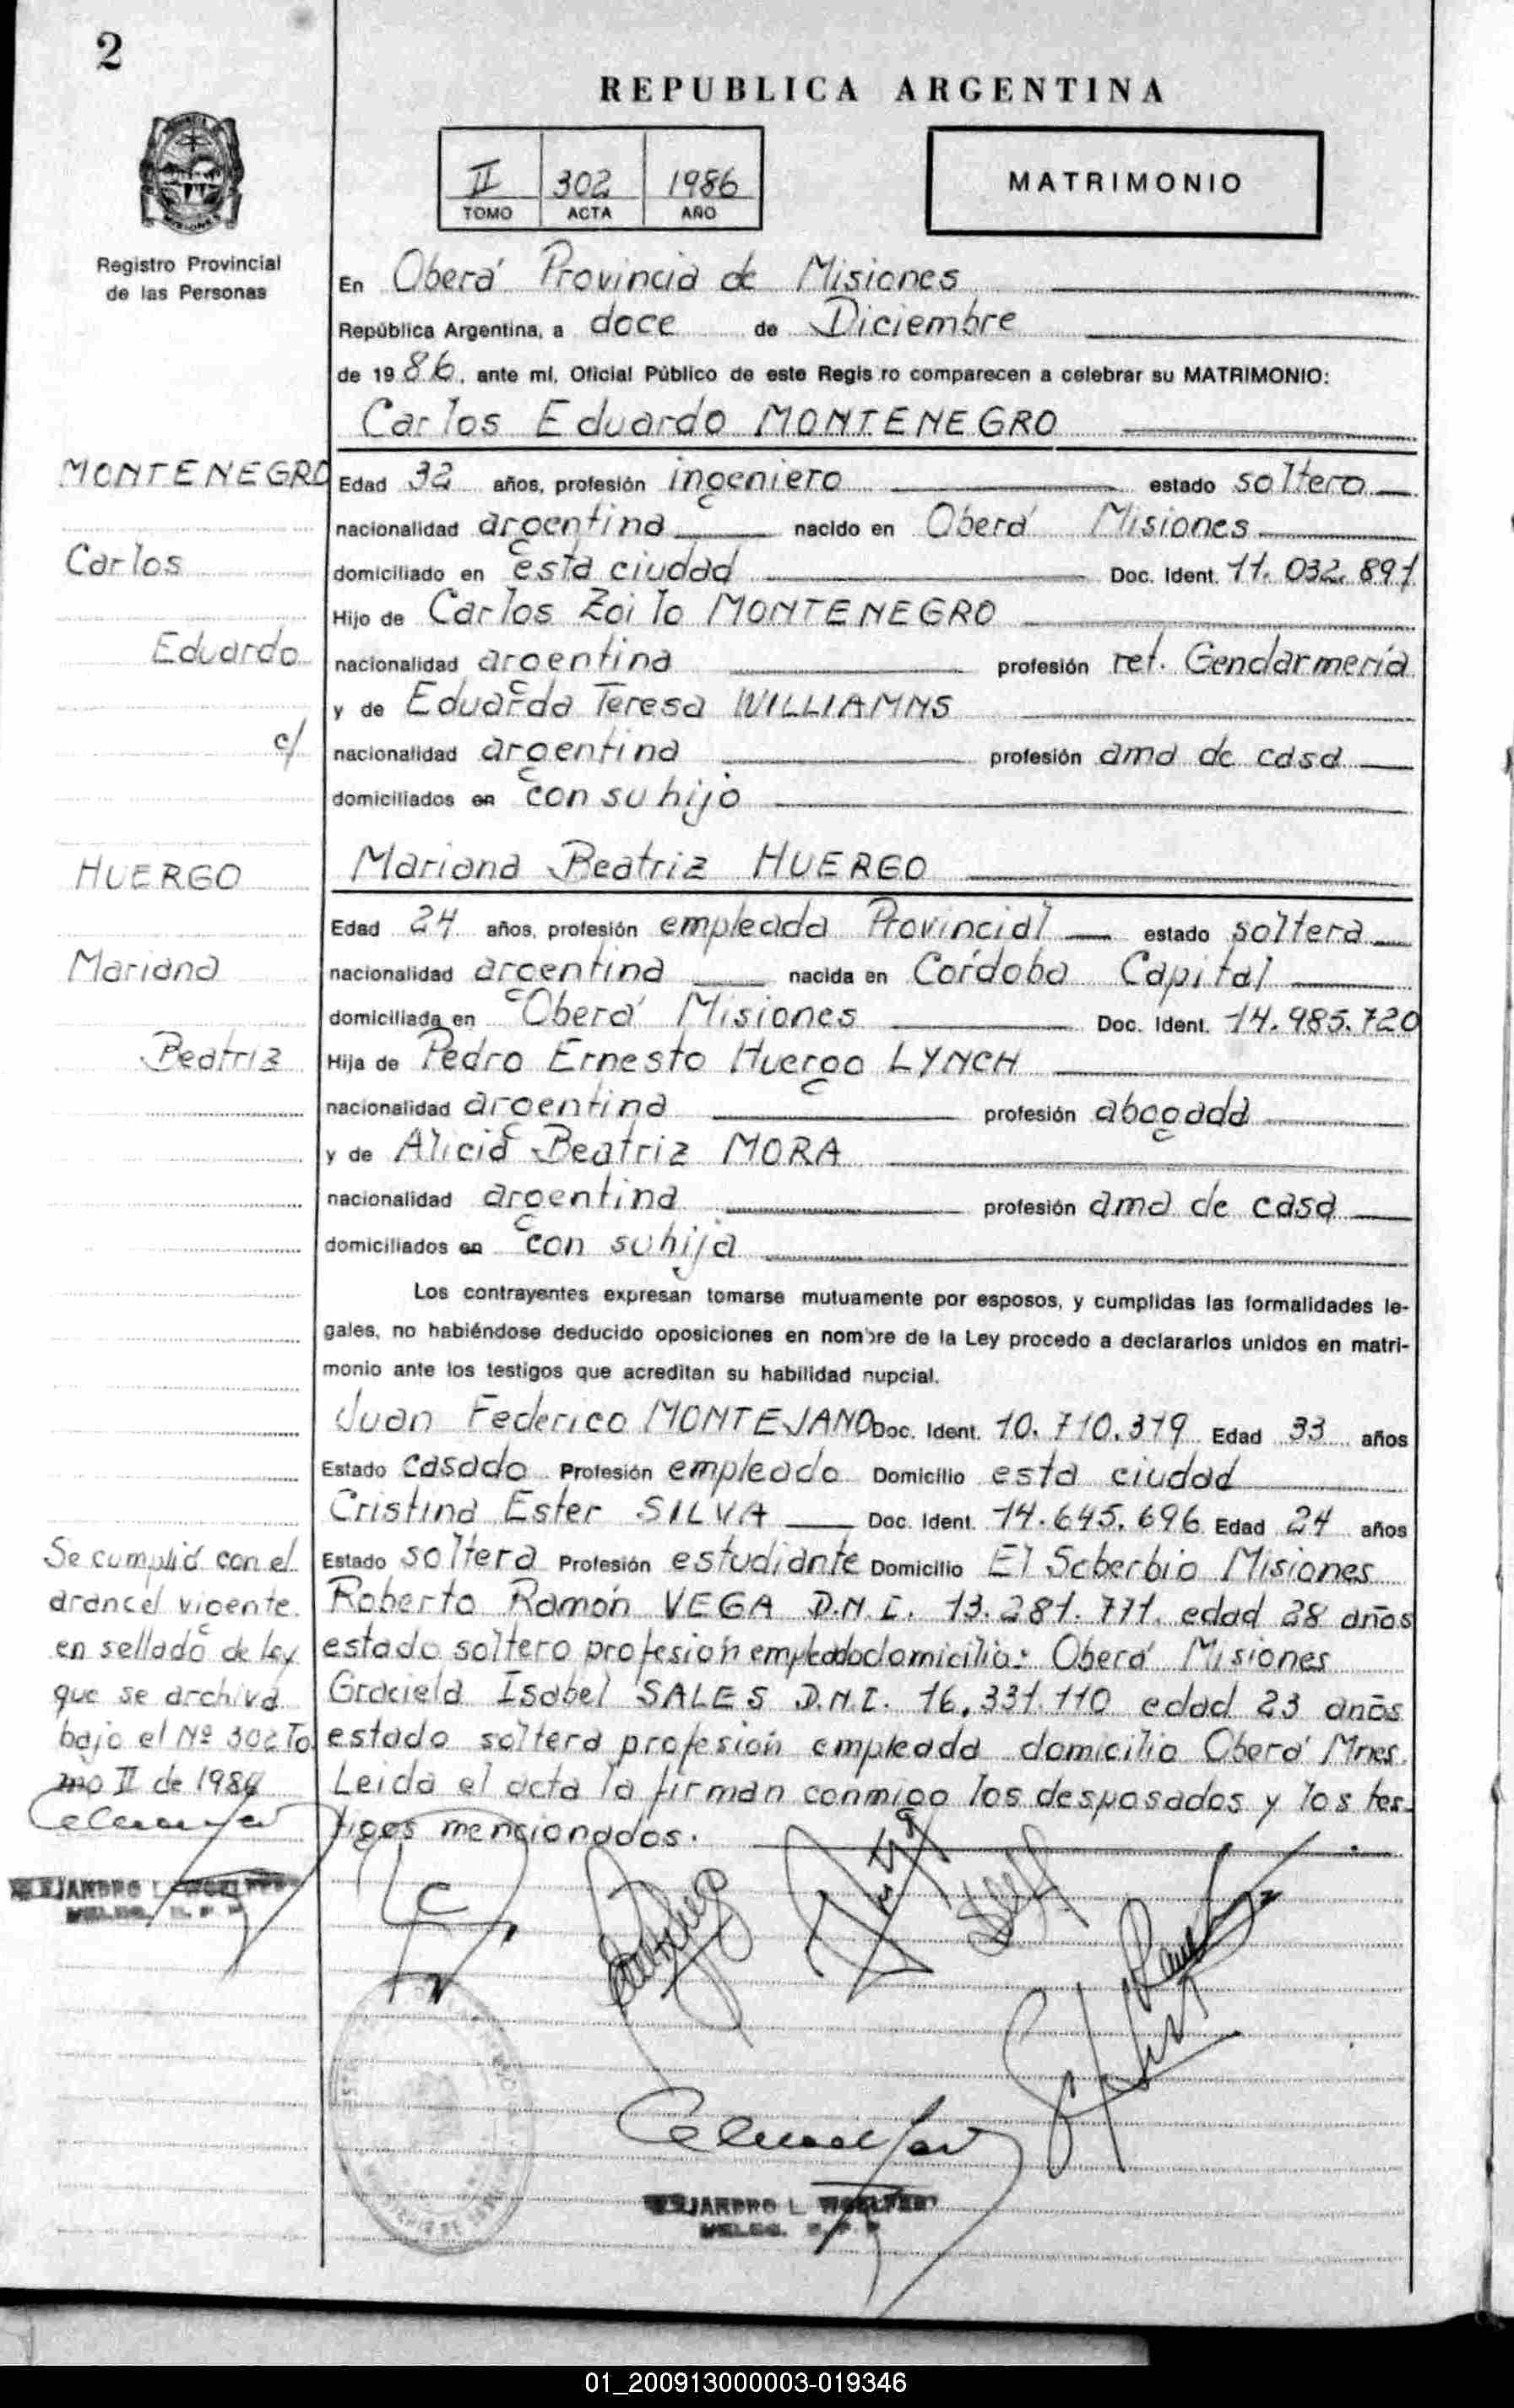 2
REPUBLICA ARGENTINA
II 302 1986
TOMO ACTA AÑO
MATRIMONIO
Registro Provincial
de las Personas
En Oberá Provincia de Misiones
República Argentina, a doce de Diciembre
de 1986, ante mí, Oficial Público de este Regis ro comparecen a celebrar su MATRIMONIO:
Carlos Eduardo MONTENEGRO
MONTENEGRO
Carlos
Eduardo
c/
HUERGO
Mariana
Beatriz
Edad 32 años, profesión ingeniero estado soltero
nacionalidad argentina nacido en Oberá Misiones
domiciliado en esta ciudad Doc. Ident. 11.032.891
Hijo de Carlos Zoilo MONTENEGRO
nacionalidad argentina profesión ret. Gendarmería
y de Eduarda Teresa WILLIAMNS
nacionalidad argentina profesión ama de casa
domiciliados en con su hijo
Mariana Beatriz HUERGO
Edad 24 años, profesión empleada Provincial estado soltera
nacionalidad argentina nacida en Córdoba Capital
domiciliada en Oberá Misiones Doc. Ident. 14.985.720
Hija de Pedro Ernesto Huergo LYNCH
nacionalidad argentina profesión abogada
y de Alicia Beatriz MORA
nacionalidad argentina profesión ama de casa
domiciliados en con su hija
Los contrayentes expresan tomarse mutuamente por esposos, y cumplidas las formalidades le-
gales, no habiéndose deducido oposiciones en nombre de la Ley procedo a declararlos unidos en matri-
monio ante los testigos que acreditan su habilidad nupcial.
Juan Federico MONTEJANO Doc. Ident. 10.710.319 Edad 33 años
Estado casado Profesión empleado Domicilio esta ciudad
Cristina Ester SILVA Doc. Ident. 14.645.696 Edad 24 años
Estado soltera Profesión estudiante Domicilio El Soberbio Misiones
Roberto Ramón VEGA D.N.I. 13.281.771. edad 28 años
estado soltero profesión empleado domicilio: Oberá Misiones
Graciela Isabel SALES D.N.I. 16,331.110 edad 23 años
estado soltera profesión empleada domicilio Oberá Mnes.
Leida el acta la firman conmigo los desposados y los tes-
tigos mencionados.
Se cumplió con el
arancel vigente
en sellado de ley
que se archiva
bajo el Nº 302 To
mo II de 1986
01_200913000003-019346